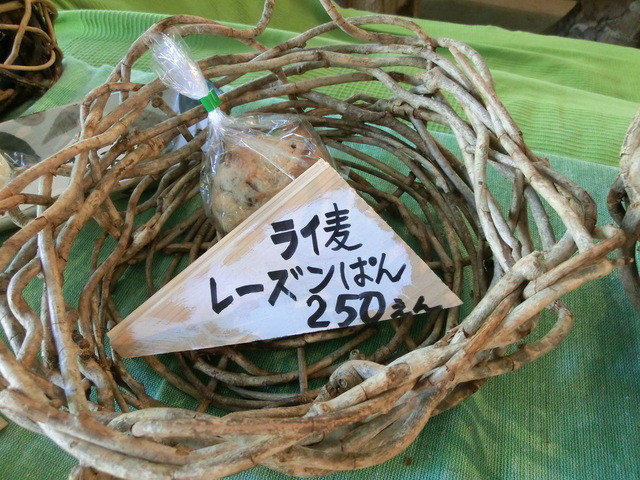 ライ麦
レーズンぱん
250えん